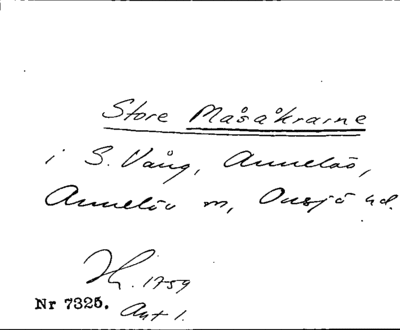 Store Måsåkrarne
i S. Vång, Annelöv,
Annelöv sn, Onsjö hd.
1759
Nr 7325. Akt 1.